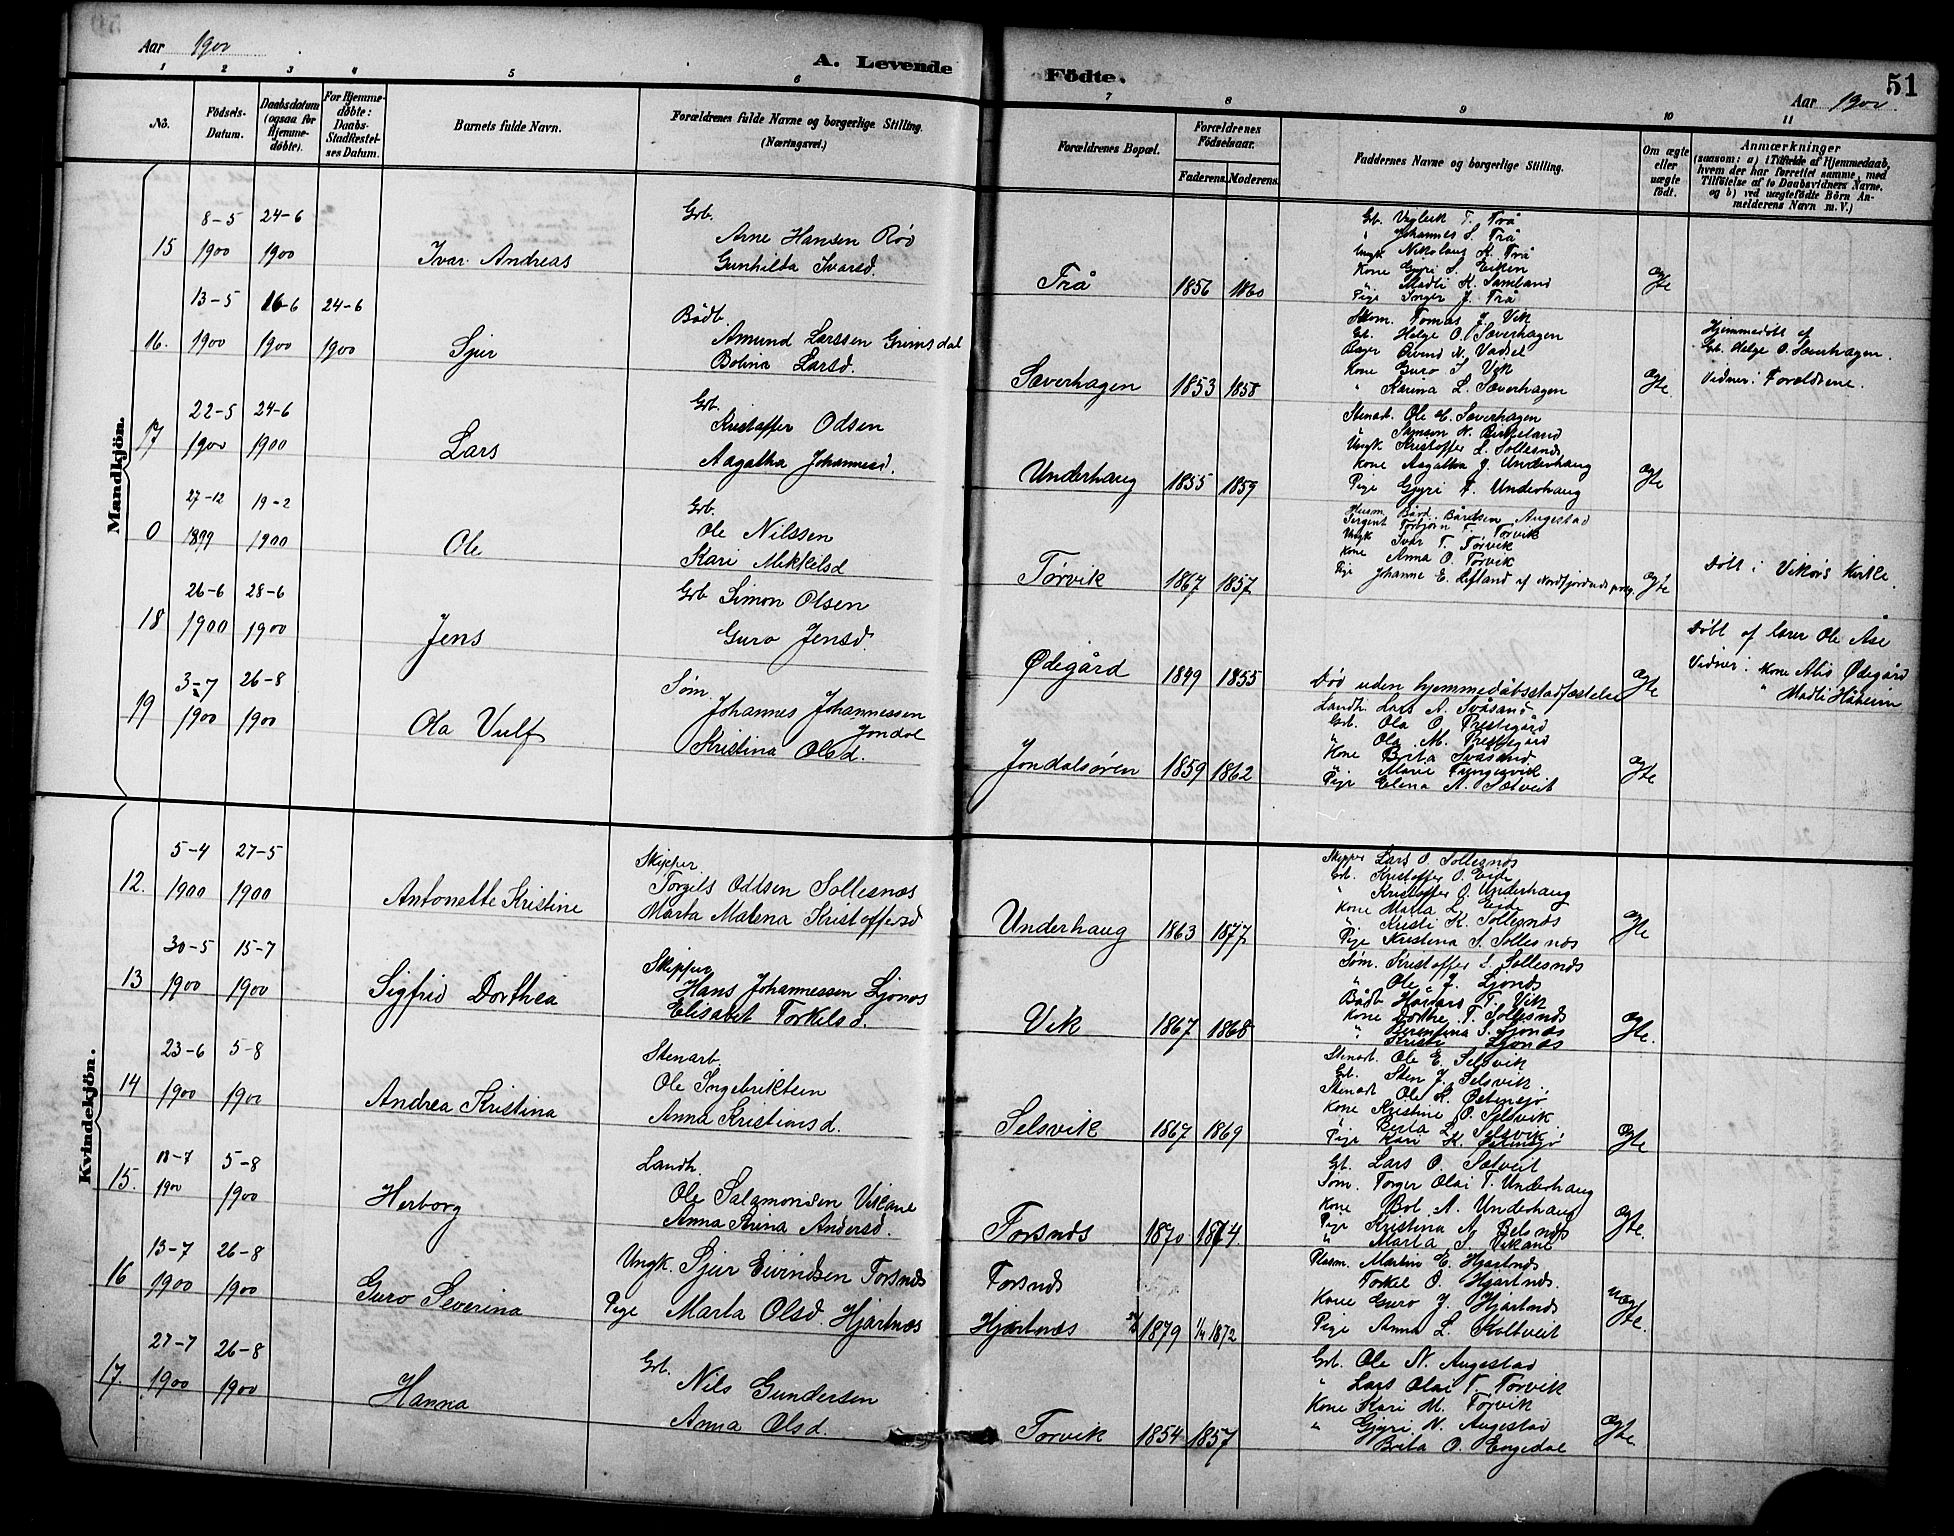 Aar 1900
A. Levende Födte.
51
Aar 1900
1 2 3 4 5 6 7 8 9 10 11
No.
Födsels-Datum.
Daabsdatum (ogsaa for Hjemme-döbte).
For Hjemme-döbte: Daabs-Stadfæstel-ses Datum.
Barnets fulde Navn.
Forældrenes fulde Navne og borgerlige Stilling. (Næringsvei.)
Forældrenes Bopæl.
Forældrenes Födselsaar.
Faderens. Moderens.
Faddernes Navne og borgerlige Stilling.
Om ægte eller uægte födt.
Anmærkninger
(saasom: a) i Tilfælde af Hjemmedaab,
hvem der har forrettet samme, med
Tilföielse af to Daabsvidners Navne,
og b) ved uægtefödte Börn An-
melderens Navn m. V.)
Mandkjön.
15 8-5 1900 24-6 1900
Ivar Andreas
Grb.
Arne Hansen Röd
Gunhilda Ivarsd.
Trå 1856 1860
Grb. Vigleik T. Trå
" Johannes S. Trå
Ungk. Nikolaus K. Trå
Kone Guri S. Eiken
" Madli K. Samland
Pige Inger J. Trå
Ægte
16. 13-5 1900 16-6 1900 24-6 1900
Sjur
Bådb.
Amund Larssen Grimsdal
Bolina Larsd.
Sæverhagen 1853 1858
Skom. Tomas J. Vik
Grb. Helge O. Sæverhagen
Bager Eivind N. Vadsel
Kone Guro I. Vik
" Karina L. Sæverhagen
Ægte
Hjemmedöbt af
Grb. Helge O. Sæverhagen.
Vidner: Forældrene.
17 22-5 1900 24-6 1900
Lars
Grb.
Kristoffer Odsen
Aagatha Johannesd.
Underhaug 1855 1859
Stenarb. Ole H. Sæverhagen
" Samson N. Birkeland
Ungk Kristoffer L. Sollesnæs
Kone Aagatha J. Underhaug
Pige Gjyri T. Underhaug
Ægte
0 27-12 1899 19-2 1900
Ole
Grb.
Ole Nilssen
Kari Mikkelsd
Torvik 1867 1857
Husm. Bård Bårdsen Augestad
Sergent Torbjörn T. Torvik
Ungk Ivar T. Torvik
Kone Anna O. Torvik
Pige Johanne E. Lifland af Nordfjordeids prg.
Ægte
Döbt i Vikörs Kirke.
18 26-6 1900 28-6 1900
Jens
Grb Simon Olsen
Guro Jensd.
Ødegård 1899 1855
Död uden hjemmedåbsstadfæstelse
Ægte
Döbt af lærer Ole Åse
Vidner: Kone Alis Ødegård
" Madli Håheim
19 3-7 1900 26-8 1900
Ola Vulf
Söm.
Johannes Johannessen
Jondal
Kristina Olsd.
Jondalsören 1859 1862
Landh. Lars A. Svåsand
Grb. Ola O. Prestegård
" Ola M. Prestegård
Kone Brita Svåsand
" Marie Tungesvik
Pige Elena A. Sætveit
Ægte
Kvindekjön.
12. 5-4 1900 27-5 1900
Antonette Kristine
Skipper
Torgils Oddsen Sollesnæs
Marta Malena Kristoffersd
Underhaug 1863 1877
Skipper Lars O. Sollesnæs
Grb. Kristoffer O. Eide
" Kristoffer O. Underhaug
Kone Marta L. Eide
" Kristi K. Sollesnæs
Pige Kristina S. Sollesnæs
Ægte
13 30-5 1900 15-7 1900
Sigfrid Dorthea
Skipper
Hans Johannessen Ljonæs
Elisabet Torkelsd.
Vik 1867 1868
Söm. Kristoffer L. Sollesnæs
" Ole J. Ljonæs
Bådb Håvard T. Vik
Kone Dorthe T. Sollesnæs
" Berentina S. Ljonæs
" Kristi Ljonæs
Ægte.
14 23-6 1900 5-8 1900
Andrea Kristina
Stenarb.
Ole Ingebriktsen
Anna Kristiansd.
Selsvik 1867 1869
Stenarb Ole E. Selsvik
Grb. Sten J. Selsvik
Stenarb Ole K. Østensjö
Kone Kristine O. Selsvik
" Berta L. Selsvik
Pige Kari K. Østensjö
Ægte
15. 18-7 1900 5-8 1900
Herborg
Landh.
Ole Salamonsen Vikane
Anna Stina Andersd.
Torsnæs 1870 1874
Grb. Lars O. Sætveit
Söm. Torger Olai T. Underhaug
Kone Bol A. Underhaug
Pige Kristina A. Belsnæs
" Marta S. Vikane
Ægte.
16 13-7 1900 26-8 1900
Guro Severina
Ungk. Sjur Eivindsen Torsnæs
Pige Marta Olsd. Hjartnæs
Torsnæs
Hjartnæs 1879 1/4 1872
Plasm. Martin E. Hjartnæs
Torkel O. Hjartnæs.
Kone Guro J. Hjartnæs
Pige Anna L. Koltveit
Uægte.
17 27-7 1900 26-8 1900
Hanna
Grb.
Nils Gundersen
Anna Olsd.
Torvik 1854 1857
Grb. Ole N. Augestad
" Lars Olai T. Torvik
Kone Kari M. Torvik
" Gjyri N. Augestad
Brita O. Engedal
Ægte